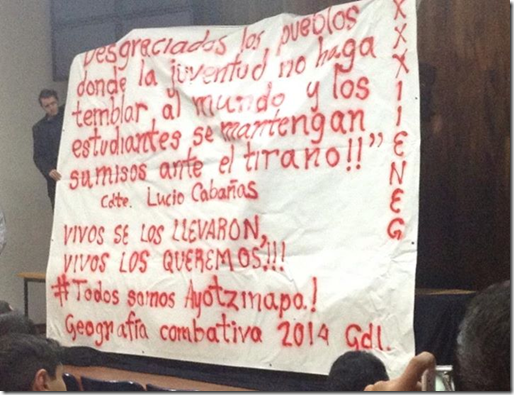 Desgraciados los pueblos
donde la juventud no haga
temblar al mundo y los
estudiantes se mantengan
sumisos ante el tirano!!"
Cdte. Lucio Cabañas
VIVOS SE LOS LLEVARON,
VIVOS LOS QUEREMOS!!!
#Todos somos Ayotzinapa.!
Geografía combativa 2014 Gdl.
XXXIIENEG